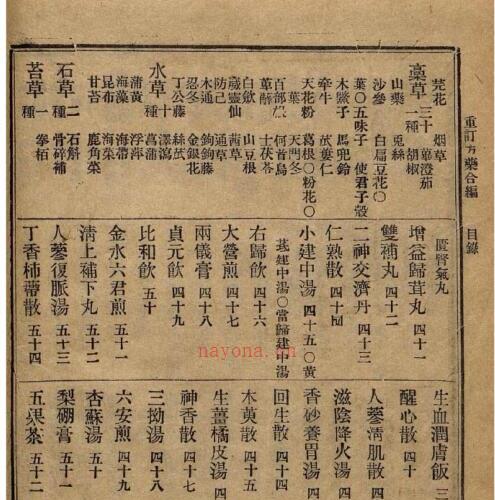 重訂方藥合編 目錄
芫花 烟草
藁草 三十一種 蓽澄茄 胡椒
山藥 兎絲
沙參 白扁豆花〇
葉〇五味子 使君子殼
木鱉子 馬兜鈴
牽牛 苽蔞仁
天花粉 葛根〇粉花〇
葉 天門冬
百部 何首烏
萆薢 土茯苓
白斂 山豆根
葳靈仙 茜草
防己 通草
木通 鉤鉤藤
忍冬 金銀花
丁公藤 絲苽
水草 十種 澤瀉 菖蒲
蒲黃 浮萍
海藻 海帶
昆布 海菜
甘苔 鹿角菜
石草 二種 石斛 骨碎補
苔草 一種 拳栢
腎氣丸
增益歸茸丸 四十一
雙補丸 四十二
二神交濟丹 四十三
仁熟散 四十四
小建中湯 四十五〇黃
芪建中湯〇當歸建中湯
右歸飮 四十六
大營煎 四十七
兩儀膏 四十八
貞元飮 四十九
比和飮 五十
金水六君煎 五十一
淸上補下丸 五十二
人蔘復脈湯 五十三
丁香柿蔕散 五十四
生血潤膚飯
醒心散 四十
人蔘淸肌散 四
滋陰降火湯 四
香砂養胃湯 四
回生散 四十四
木萸散 四十五
生薑橘皮湯 四
神香散 四十七
三拗湯 四十八
六安煎 四十九
杏蘇湯 五十
梨硼膏 五十一
五果茶 五十二
nayona.cn